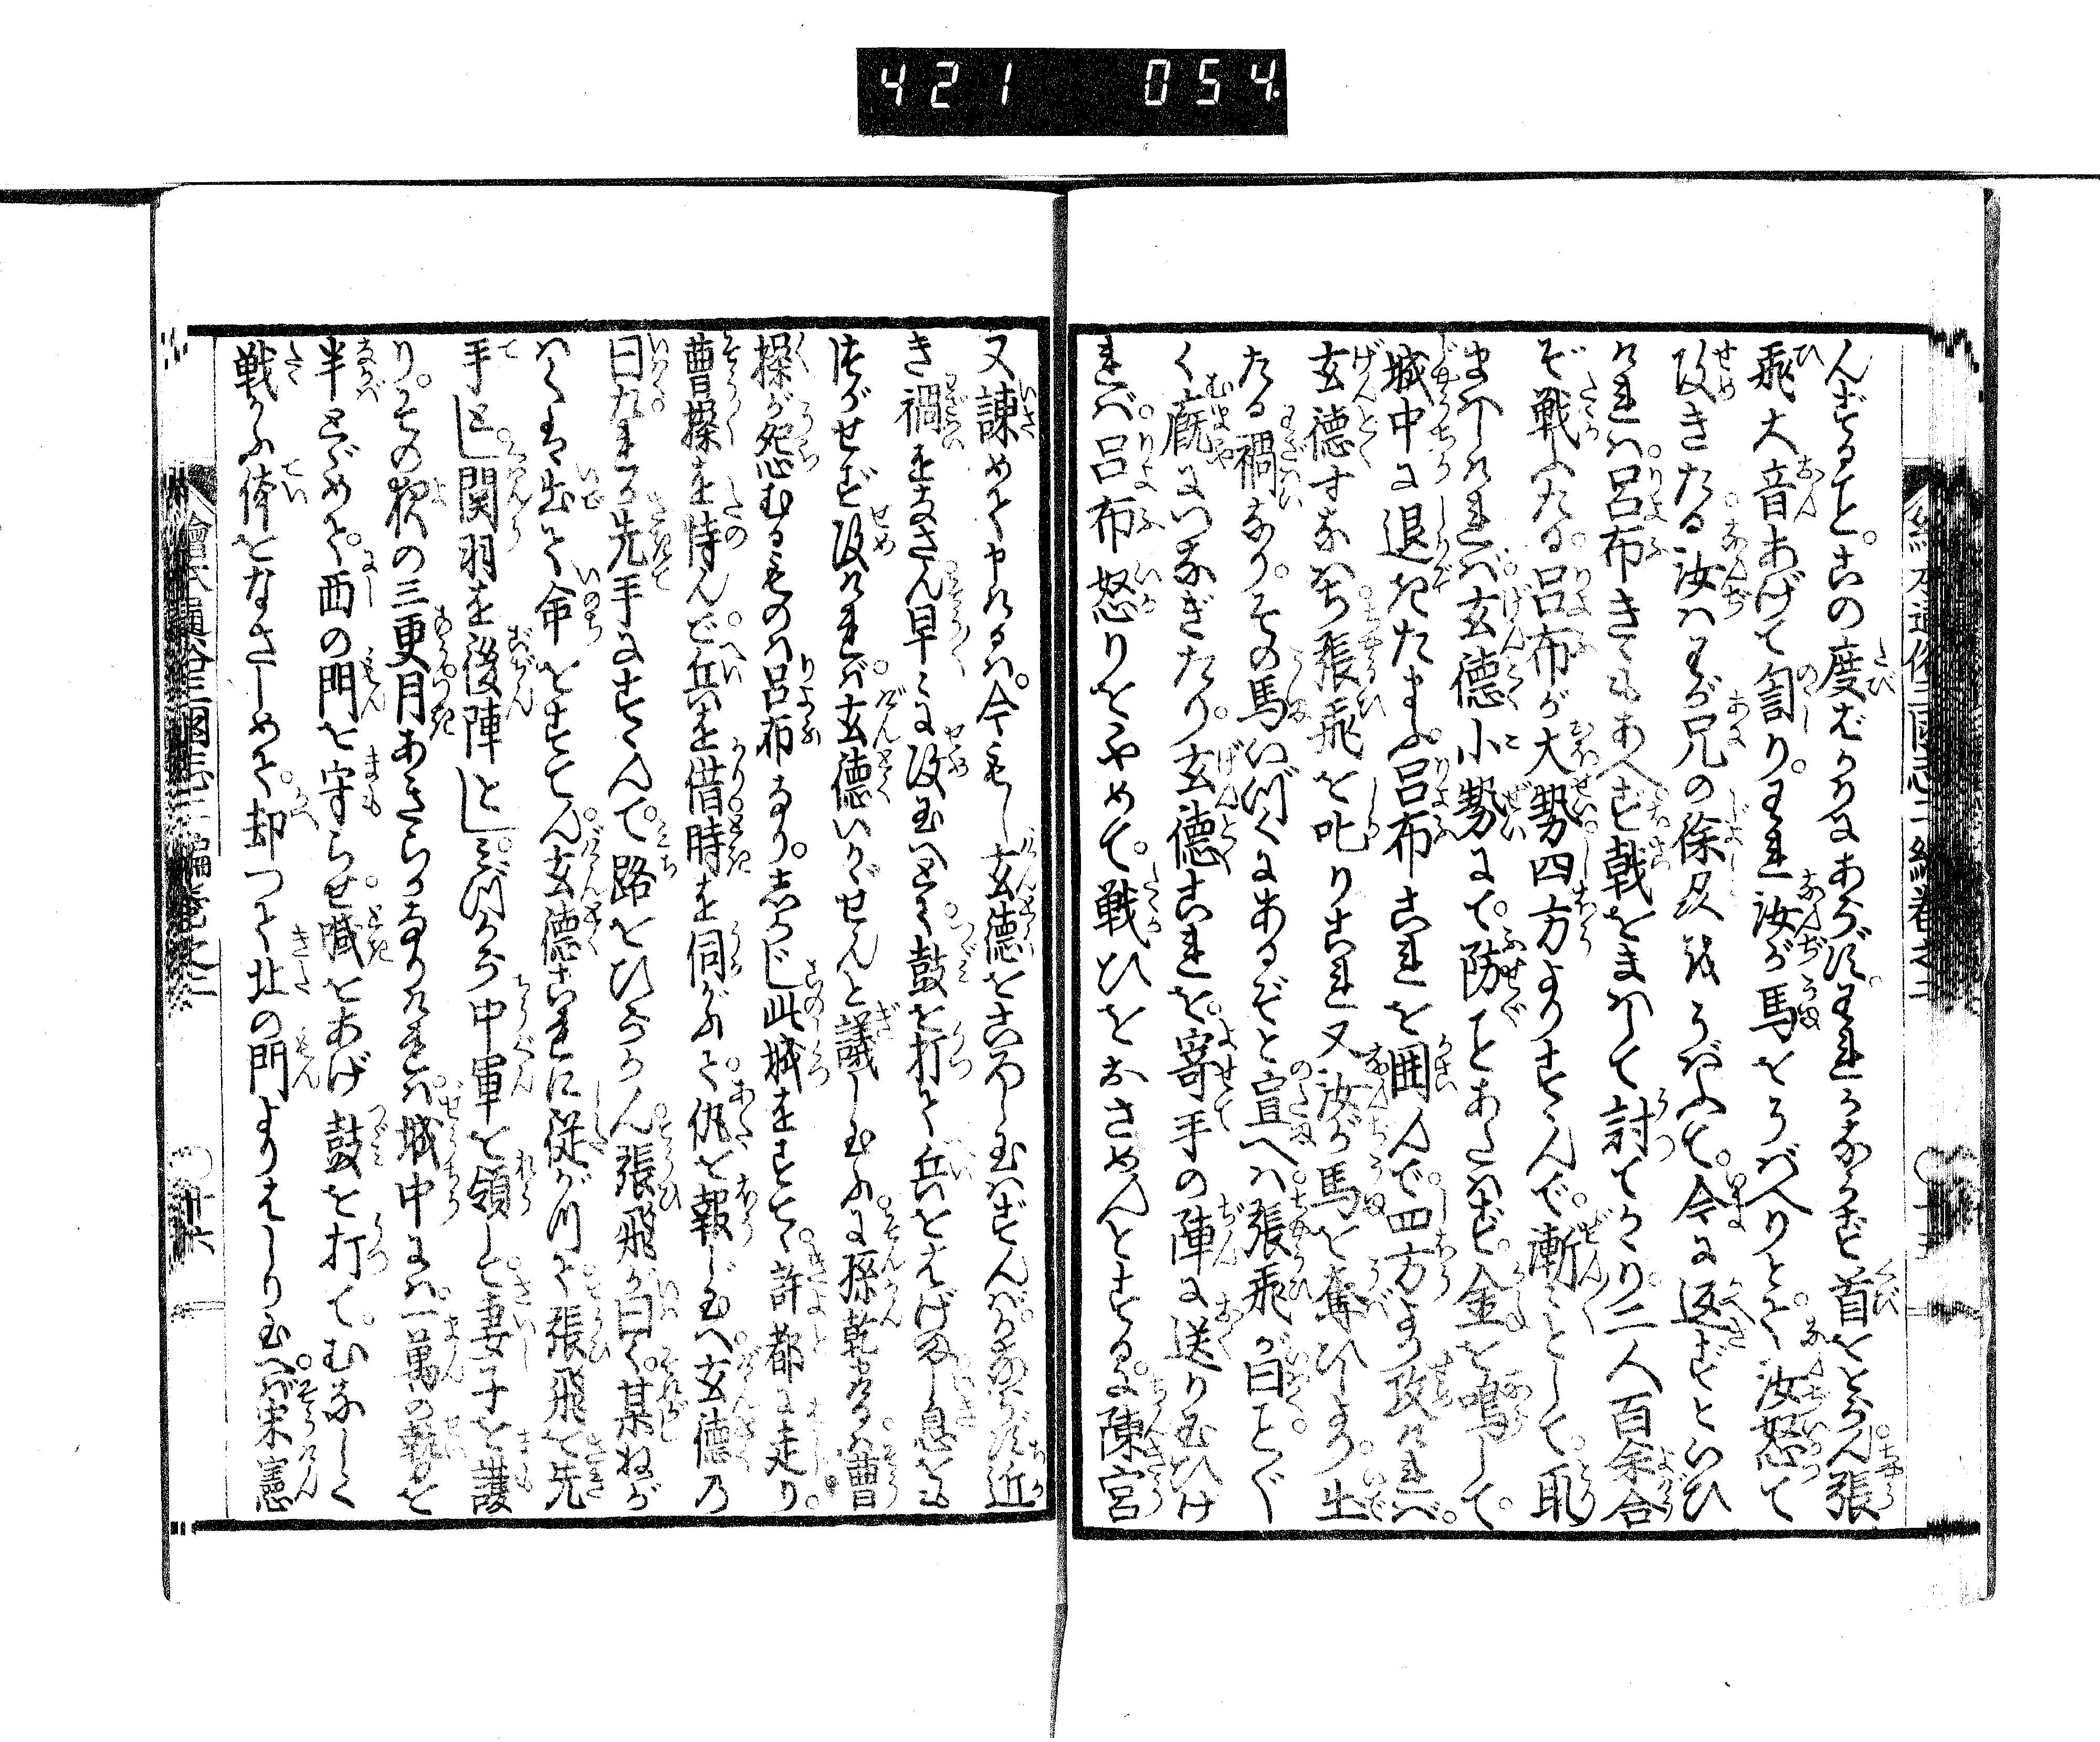 421 054
んずること。此の度ばかりにあらず。われかならず首をとらん張
飛大音あげて詈り。われ汝が馬をうばへりとて。汝怒て
攻きたる汝はわが兄の徐州をうばふて。今に返ずといひ
ければ。呂布きゝもあへず戟をまはして討てかゝり二人百余合
ぞ戦ふたる。呂布が大勢四方よりすゝんで。漸〻として取
まはしければ。玄德小勢にて。防ことあたはず。金を鳴して。
城中に退きたまふ。呂布これを囲んで。四方より攻ければ。
玄德すなはち張飛を叱りこれ又汝が馬を奪ひしより。出
たる禍なり。その馬いづくにあるぞと宣へば。張飛が曰ことごと
く廐につなぎたり。玄德これを。寄手の陣に送り玉ひけ
れば。呂布怒りをやめて。戦ひをおさめんとするに陳宮
又諫めて申けるは。今もし玄德をころし玉はずんば。かならず近
き禍をなさん早〻に攻玉へとて。鼓を打て兵をすゝげまし息をも
つがせず攻ければ。玄德いかゞせんと議し玉ふに。孫乾が曰。曹
操が怨むるものは呂布なり。しかじ此城をすてゝ。許都に走り。
曹操を恃んで。兵を借時を伺がふて。仇を報じ玉へ。玄德乃
曰たれか先手にすゝんで。路をひらかん。張飛が曰く。某ねが
はくは出て命をすてん。玄德これに従がひて。張飛を先
手とし関羽を後陣とし。みづから中軍を領して。妻子を護
り。その夜の三更月あきらかなりければ。城中には。一萬の勢を
半とゞめて。西の門を守らせ。喊をあげ鼓を打て。むなしく
戦かふ体をなさしめて。却つて北の門よりはしり玉へば。宋憲
繪本通俗三國志二編巻之二
繪本通俗三國志二編巻之二 〇廿六